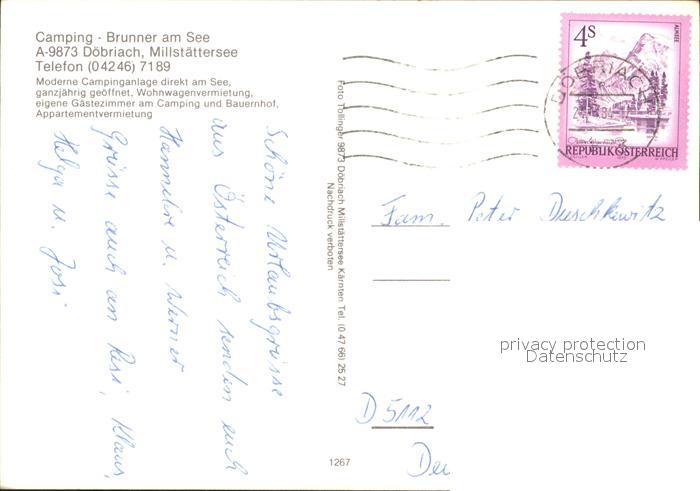 Camping - Brunner am See
A-9873 Döbriach, Millstättersee
Telefon (04246) 7189
Moderne Campinganlage direkt am See,
ganzjährig geöffnet, Wohnwagenvermietung,
eigene Gästezimmer am Camping und Bauernhof,
Appartementvermietung
Schöne Urlaubsgrüsse
aus Österreich senden euch
Hannelore u. Werner
Grüsse auch an Resi, Klaus,
Helga u. Josi
Foto Tollinger 9873 Döbriach Millstättersee Kärnten Tel. (0 47 66) 25 27
Nachdruck verboten
1267
4S
ALMSEE
REPUBLIK ÖSTERREICH
DÖBRIACH
Fam. Peter Duschkewitz
privacy protection
Datenschutz
D 5112